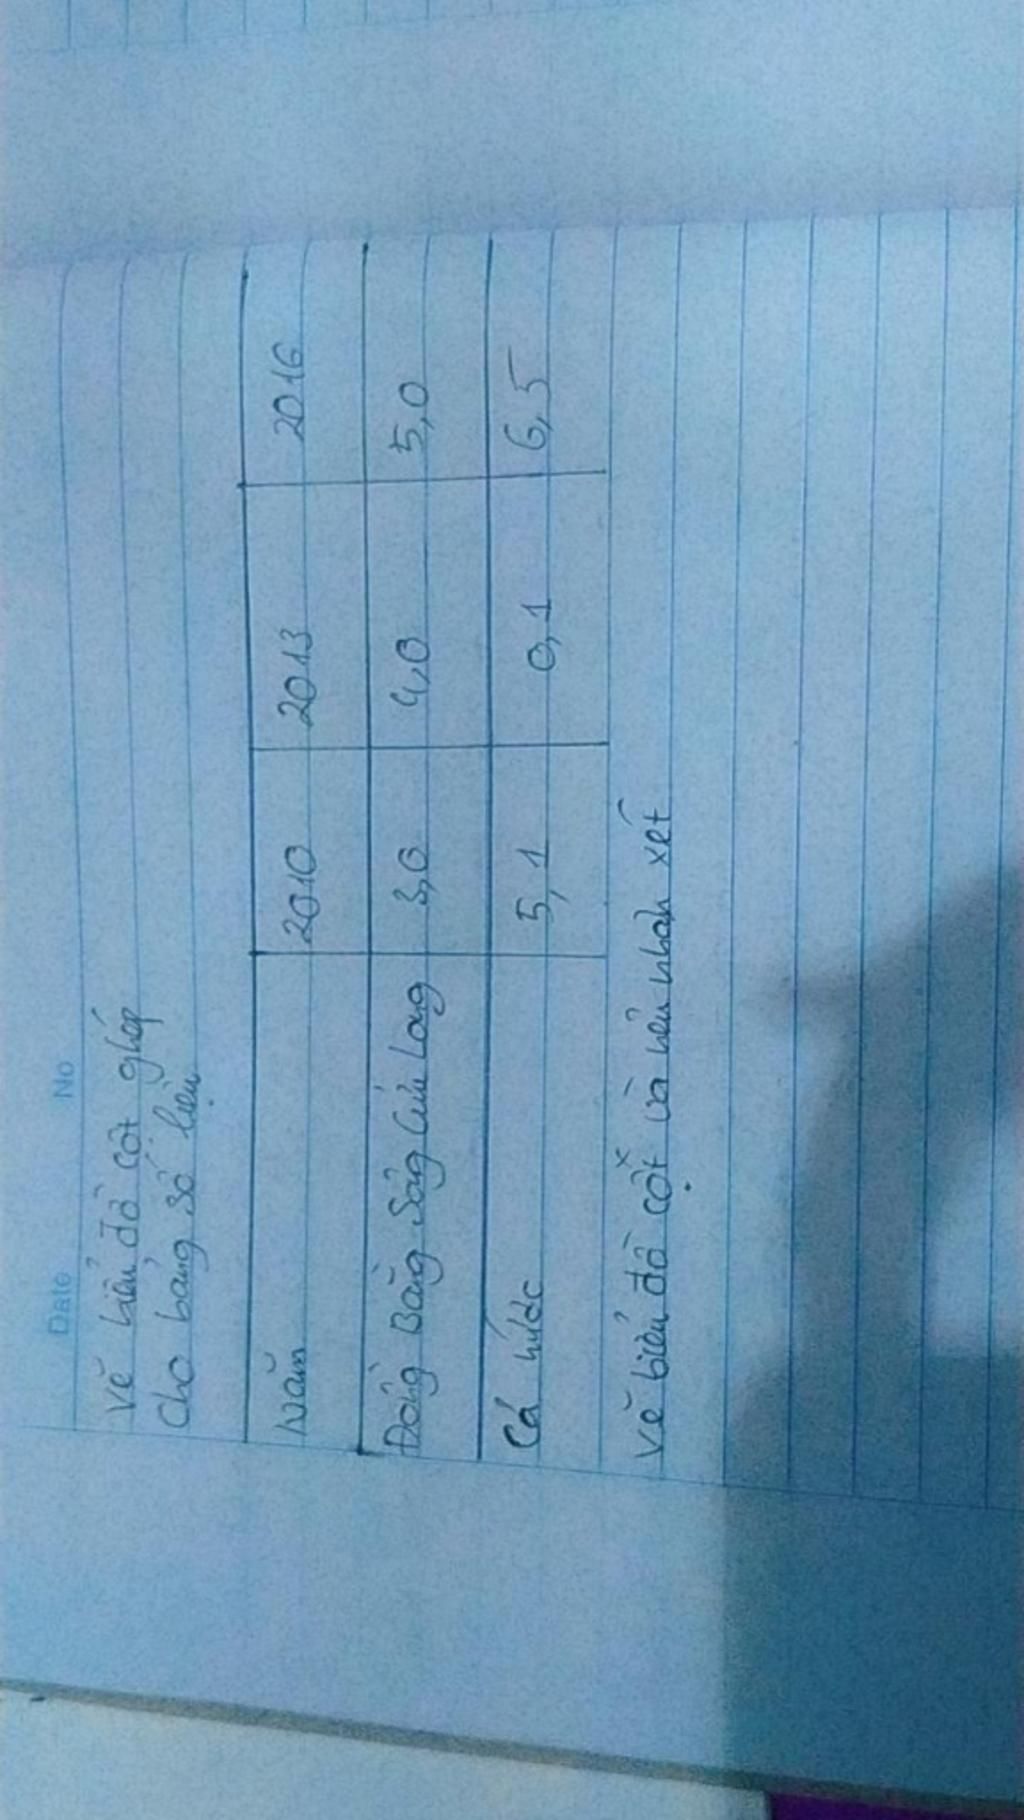 Date No
Vẽ biểu đồ cột ghép
Cho bảng số liệu
Năm 2010 2013 2016
Đồng Bằng Sông Cửu Long 3,0 4,0 5,0
Cả nước 5,1 0,1 6,5
Vẽ biểu đồ cột và nêu nhận xét